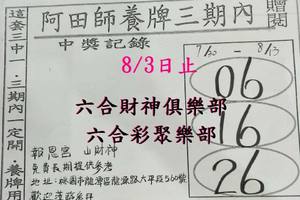 阿田師養牌三期內
贈閱
這套三中1,三期內定開.養牌用
中獎記錄
8/3日止
7/30 - 8/13
06
16
26
六合財神俱樂部
六合彩聚樂部
報恩宮 山財神
免費長期提供參考
地址:桃園市龍潭區龍源路大平段560號
歡迎蒞臨參拜